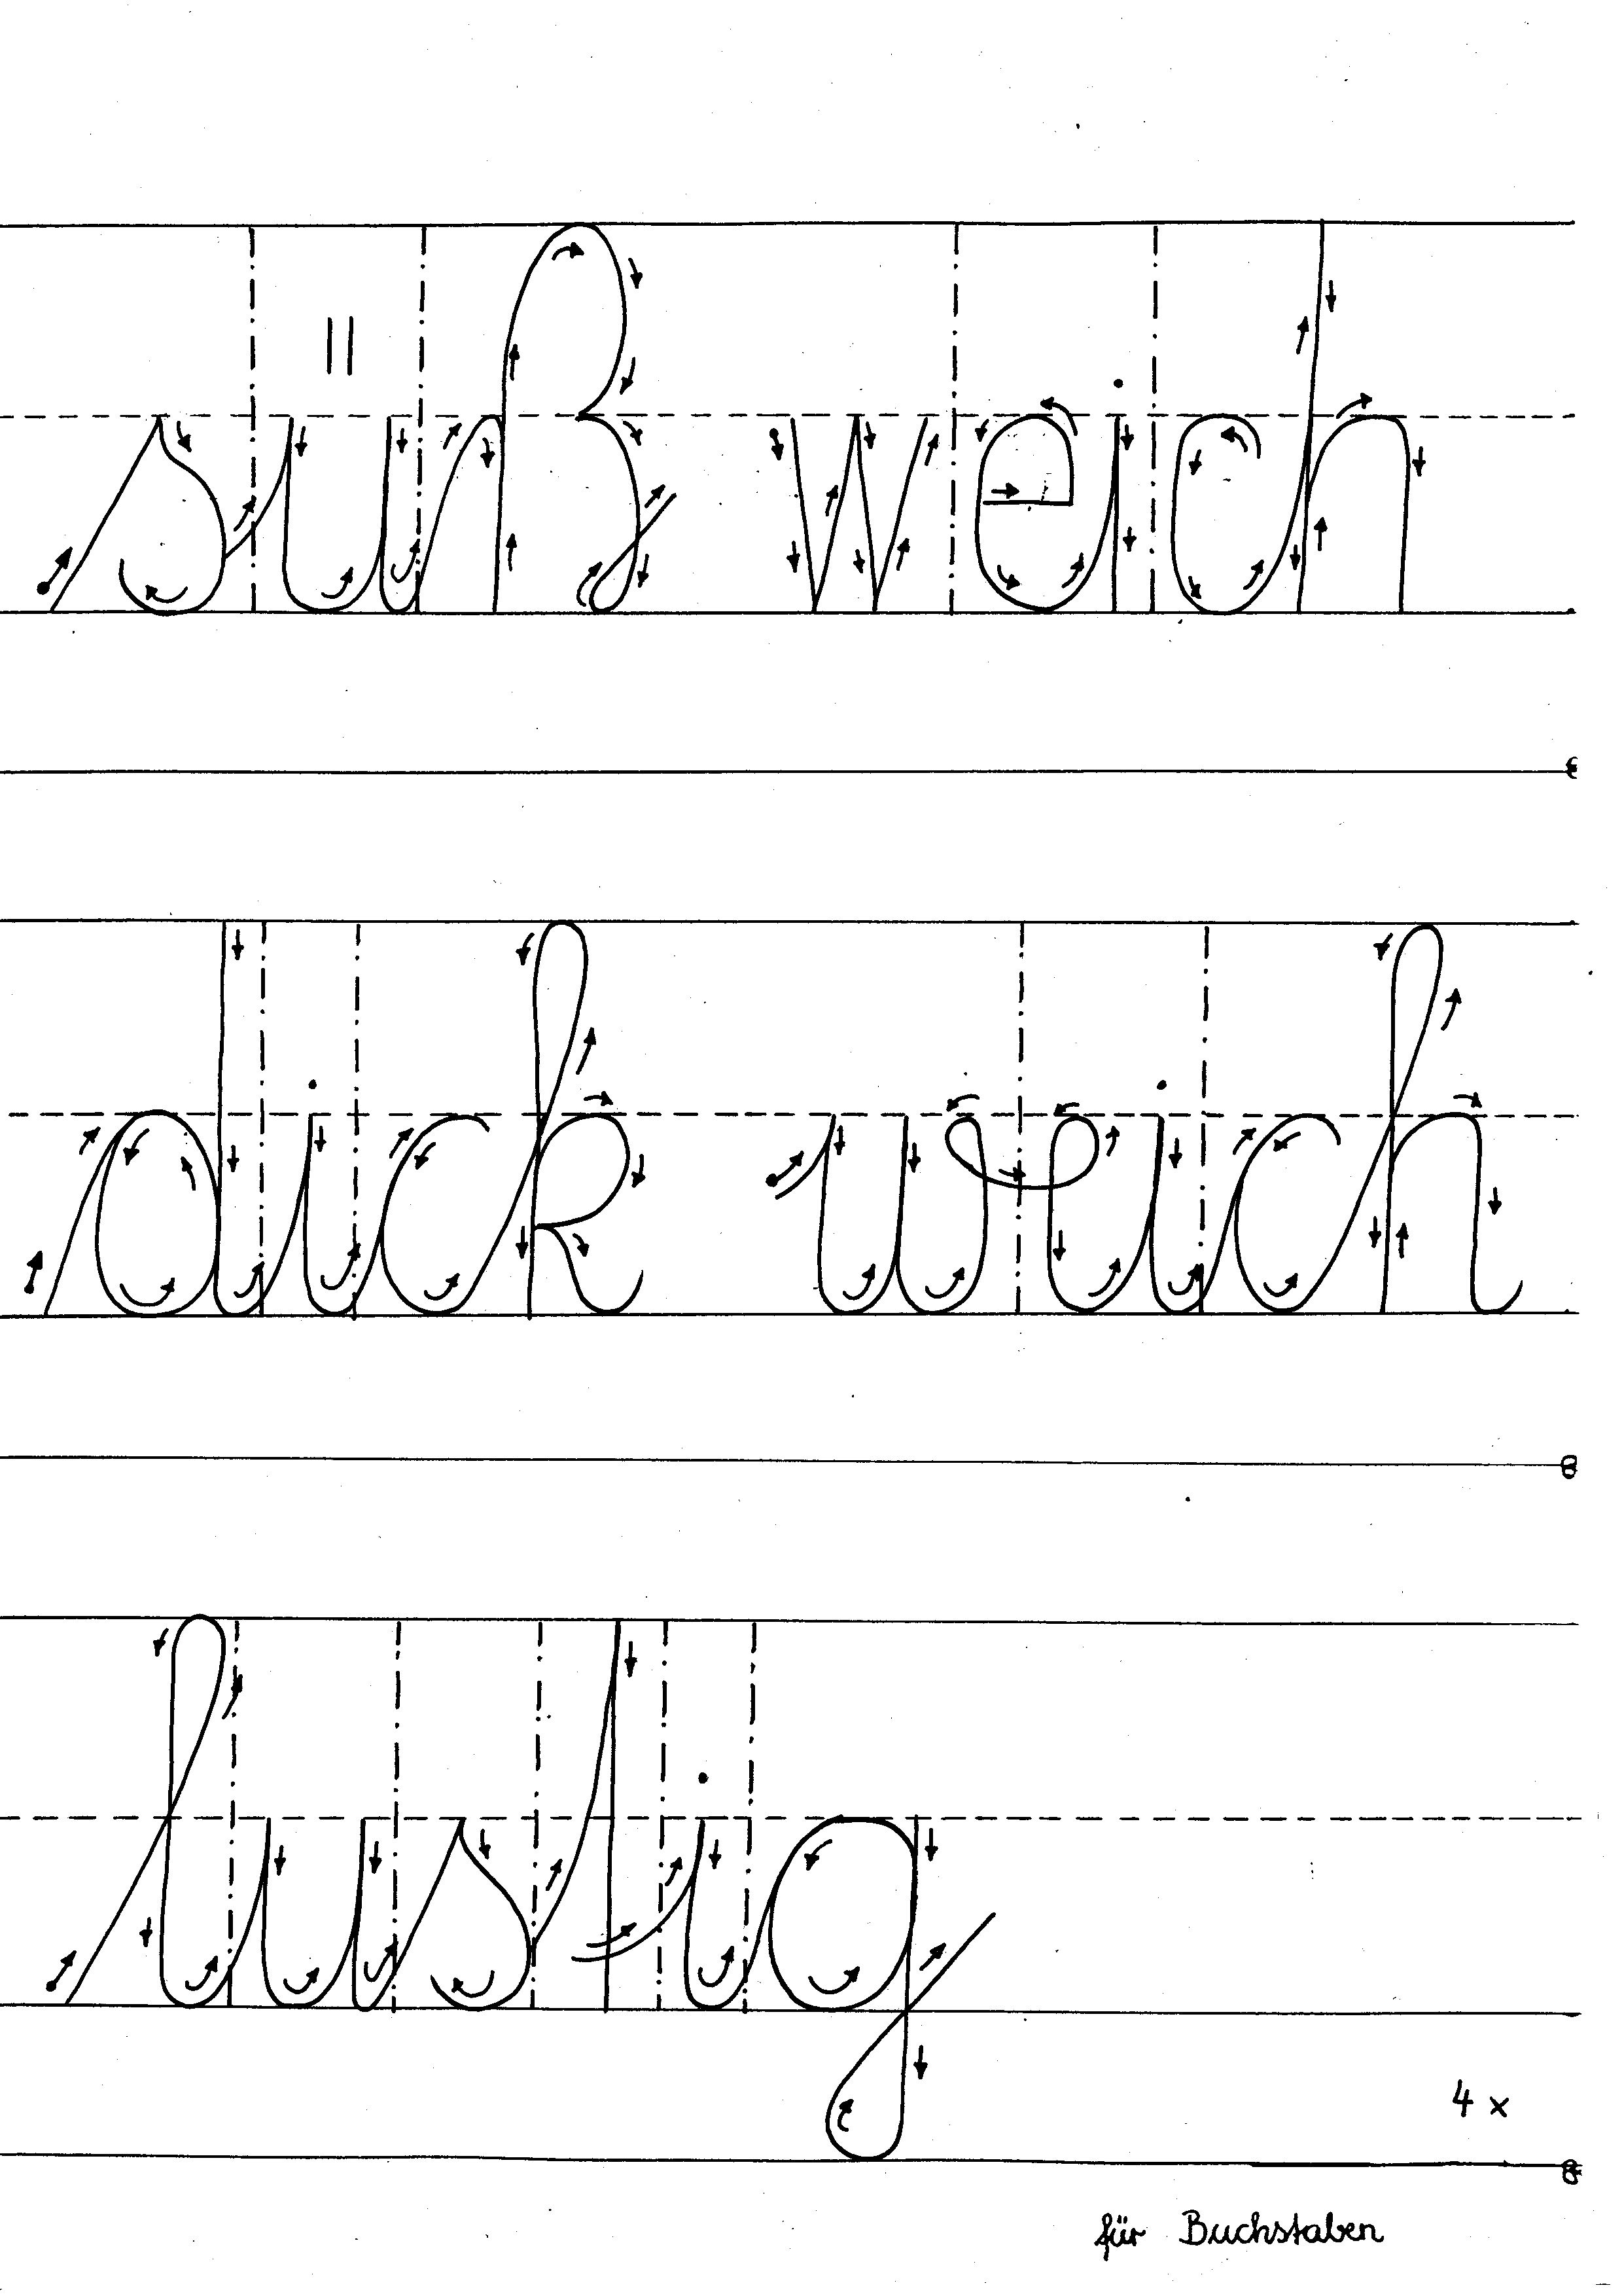 süß weich
dick weich
lustig
4 x
für Buchstaben